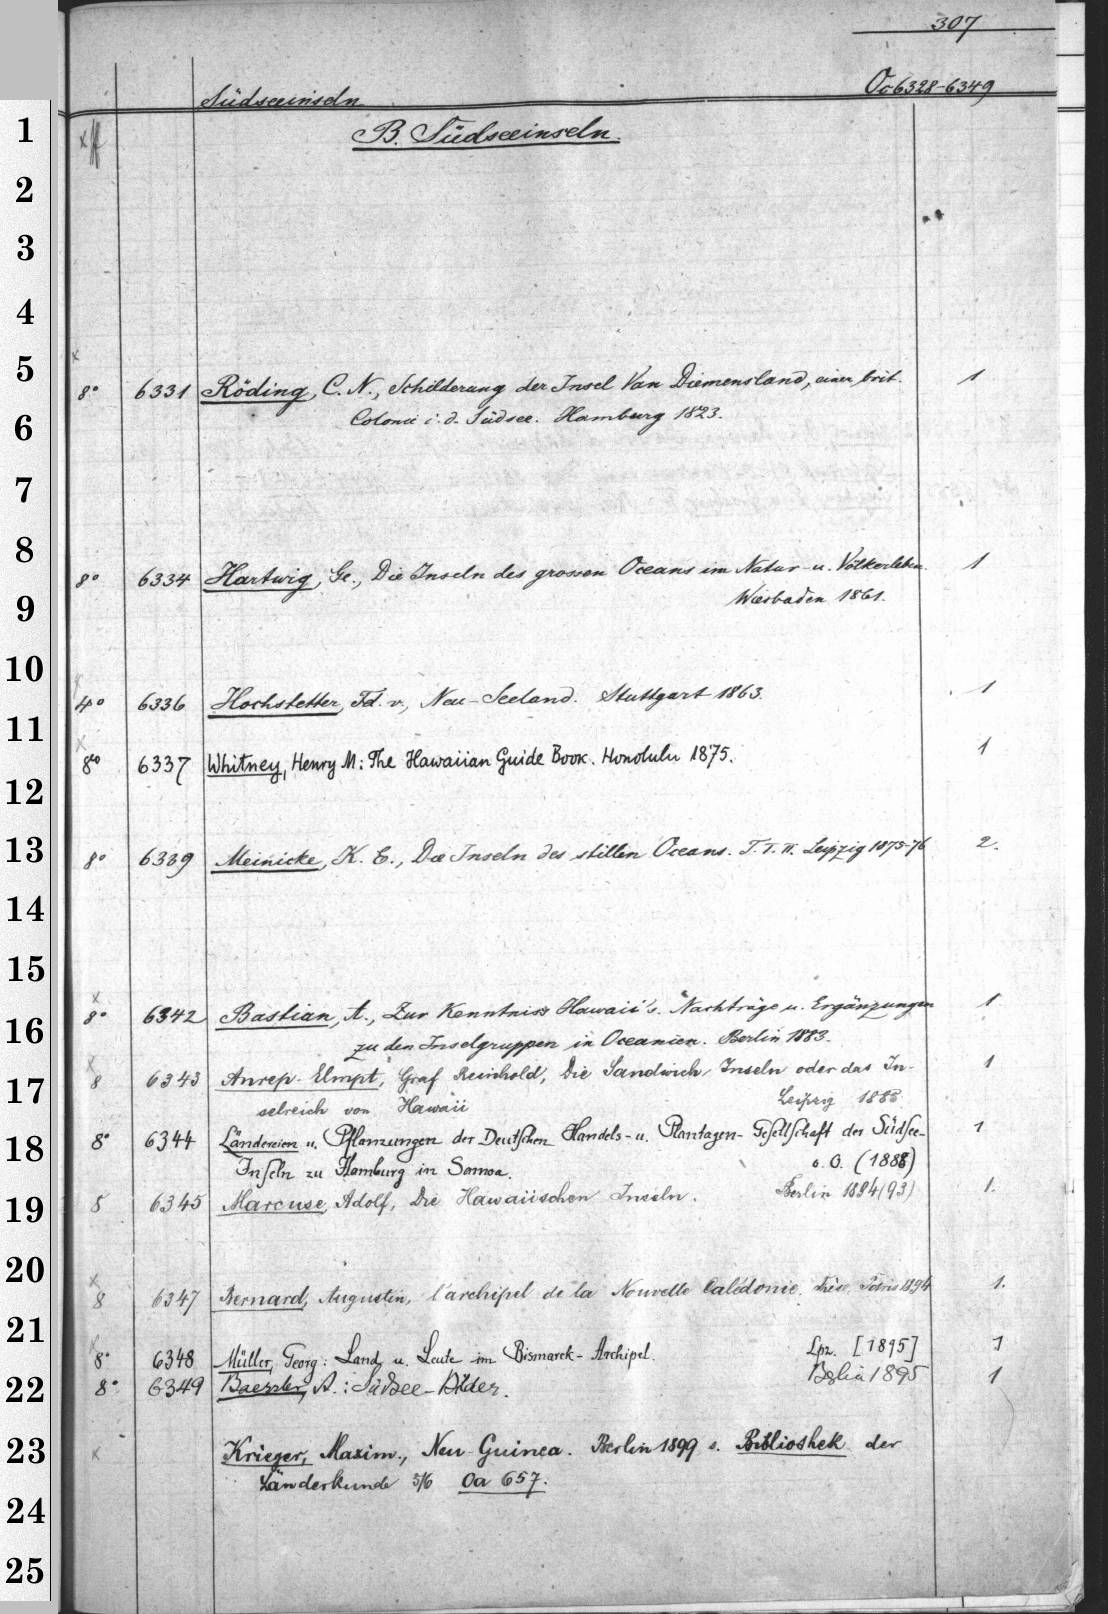 307
Südseeinseln Oc 6328-6349
B. Südseeinseln.
8° 6331 Röding, C. N., Schilderung der Insel Van Diemensland, einer brit. 1
Colonie i. d. Südsee. Hamburg 1823.
8° 6334 Hartwig, Ge., Die Inseln des grossen Oceans im Natur- u. Völkerleben. 1
Wiesbaden 1861.
4° 6336 Hochstetter, Fd. v., Neu-Seeland. Stuttgart 1863. 1
8° 6337 Whitney, Henry M: The Hawaiian Guide Book. Honolulu 1875. 1
8° 6339 Meinicke, K. E., Die Inseln des stillen Oceans. T. I. II. Leipzig 1875-76 2.
8° 6342 Bastian, A., Zur Kenntniss Hawaii's. Nachträge u. Ergänzungen 1
zu den Inselgruppen in Oceanien. Berlin 1883.
8 6343 Anrep-Elmpt, Graf Reinhold, Die Sandwich-Inseln oder das In- 1
selreich von Hawaii Leipzig
8° 6344 Ländereien u. Pflanzungen der Deutschen Handels- u. Plantagen-Gesellschaft der Südsee- 1
Inseln zu Hamburg in Samoa. o. O. (1888)
8 6345 Marcuse, Adolf, Die Hawaiischen Inseln. Berlin 1894(93) 1.
8 6347 Bernard, Augustin, l'archipel de la Nouvelle Calédonie. Paris 1894 1.
8° 6348 Müller, Georg: Land u. Leute im Bismarck-Archipel. Lpz. [1895] 1
8° 6349 Baessler, A.: Südsee-Bilder. Berlin 1895 1
Krieger, Maxim., Neu-Guinea. Berlin 1899 s. Bibliothek der
Länderkunde 5/6 Oa 657.
1
2
3
4
5
6
7
8
9
10
11
12
13
14
15
16
17
18
19
20
21
22
23
24
25